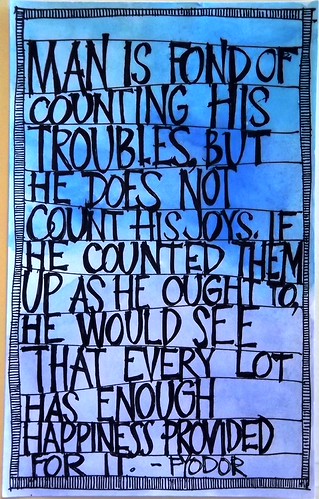 MAN IS FOND OF
COUNTING HIS
TROUBLES, BUT
HE DOES NOT
COUNT HIS JOYS. IF
HE COUNTED THEM
UP AS HE OUGHT TO,
HE WOULD SEE
THAT EVERY LOT
HAS ENOUGH
HAPPINESS PROVIDED
FOR IT. - FYODOR